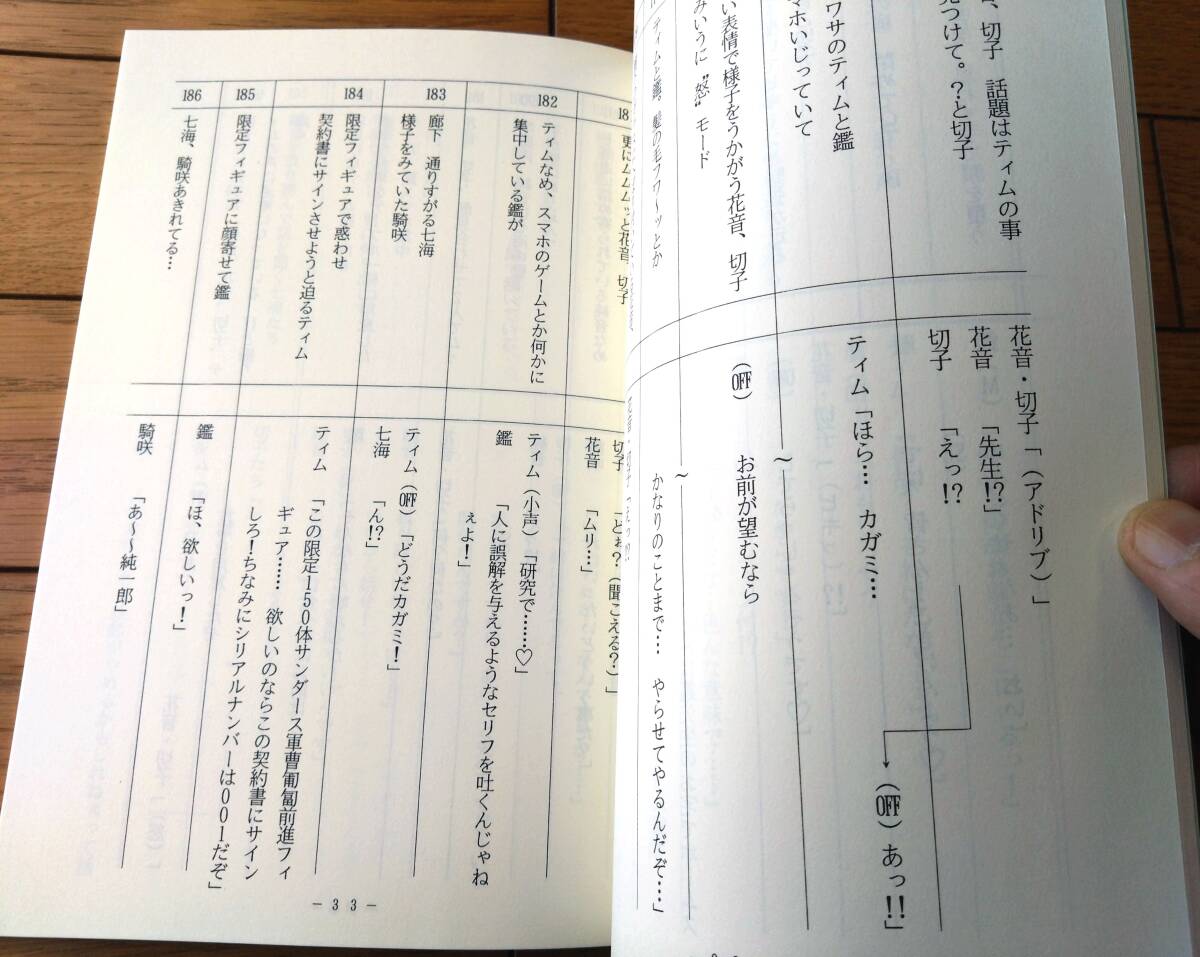 、切子 話題はティムの事
見つけて。?と切子
ワサのティムと鑑
ホいじっていて
い表情で様子をうかがう花音、切子
みいうに “怒” モード
ティムと鑑。髪の毛フワ〜ッとか
花音・切子「(アドリブ)」
花音 「先生!?」
切子 「えっ!?
(OFF) あっ!!」
ティム「ほら… カガミ…
〜
(OFF) お前が望むなら
〜
かなりのことまで… やらせてやるんだぞ…」
18
更にムムムッと花音、切子
182
ティムなめ、スマホのゲームとか何かに
集中している鑑が
183
廊下 通りすがる七海
様子をみていた騎咲
184
限定フィギュアで惑わせ
契約書にサインさせようと迫るティム
185
限定フィギュアに顔寄せて鑑
186
七海、騎咲あきれてる…
切子 「どぉ?(聞こえる?)」
花音 「ムリ…」
ティム(小声)「研究で……♡」
鑑 「人に誤解を与えるようなセリフを吐くんじゃね
ぇよ!」
ティム(OFF)「どうだカガミ!」
七海 「ん!?」
ティム 「この限定150体サンダース軍曹匍匐前進フィ
ギュア…… 欲しいのならこの契約書にサイン
しろ!ちなみにシリアルナンバーは001だぞ」
鑑 「ほ、欲しいっ!」
騎咲 「あ〜〜純一郎」
－33－